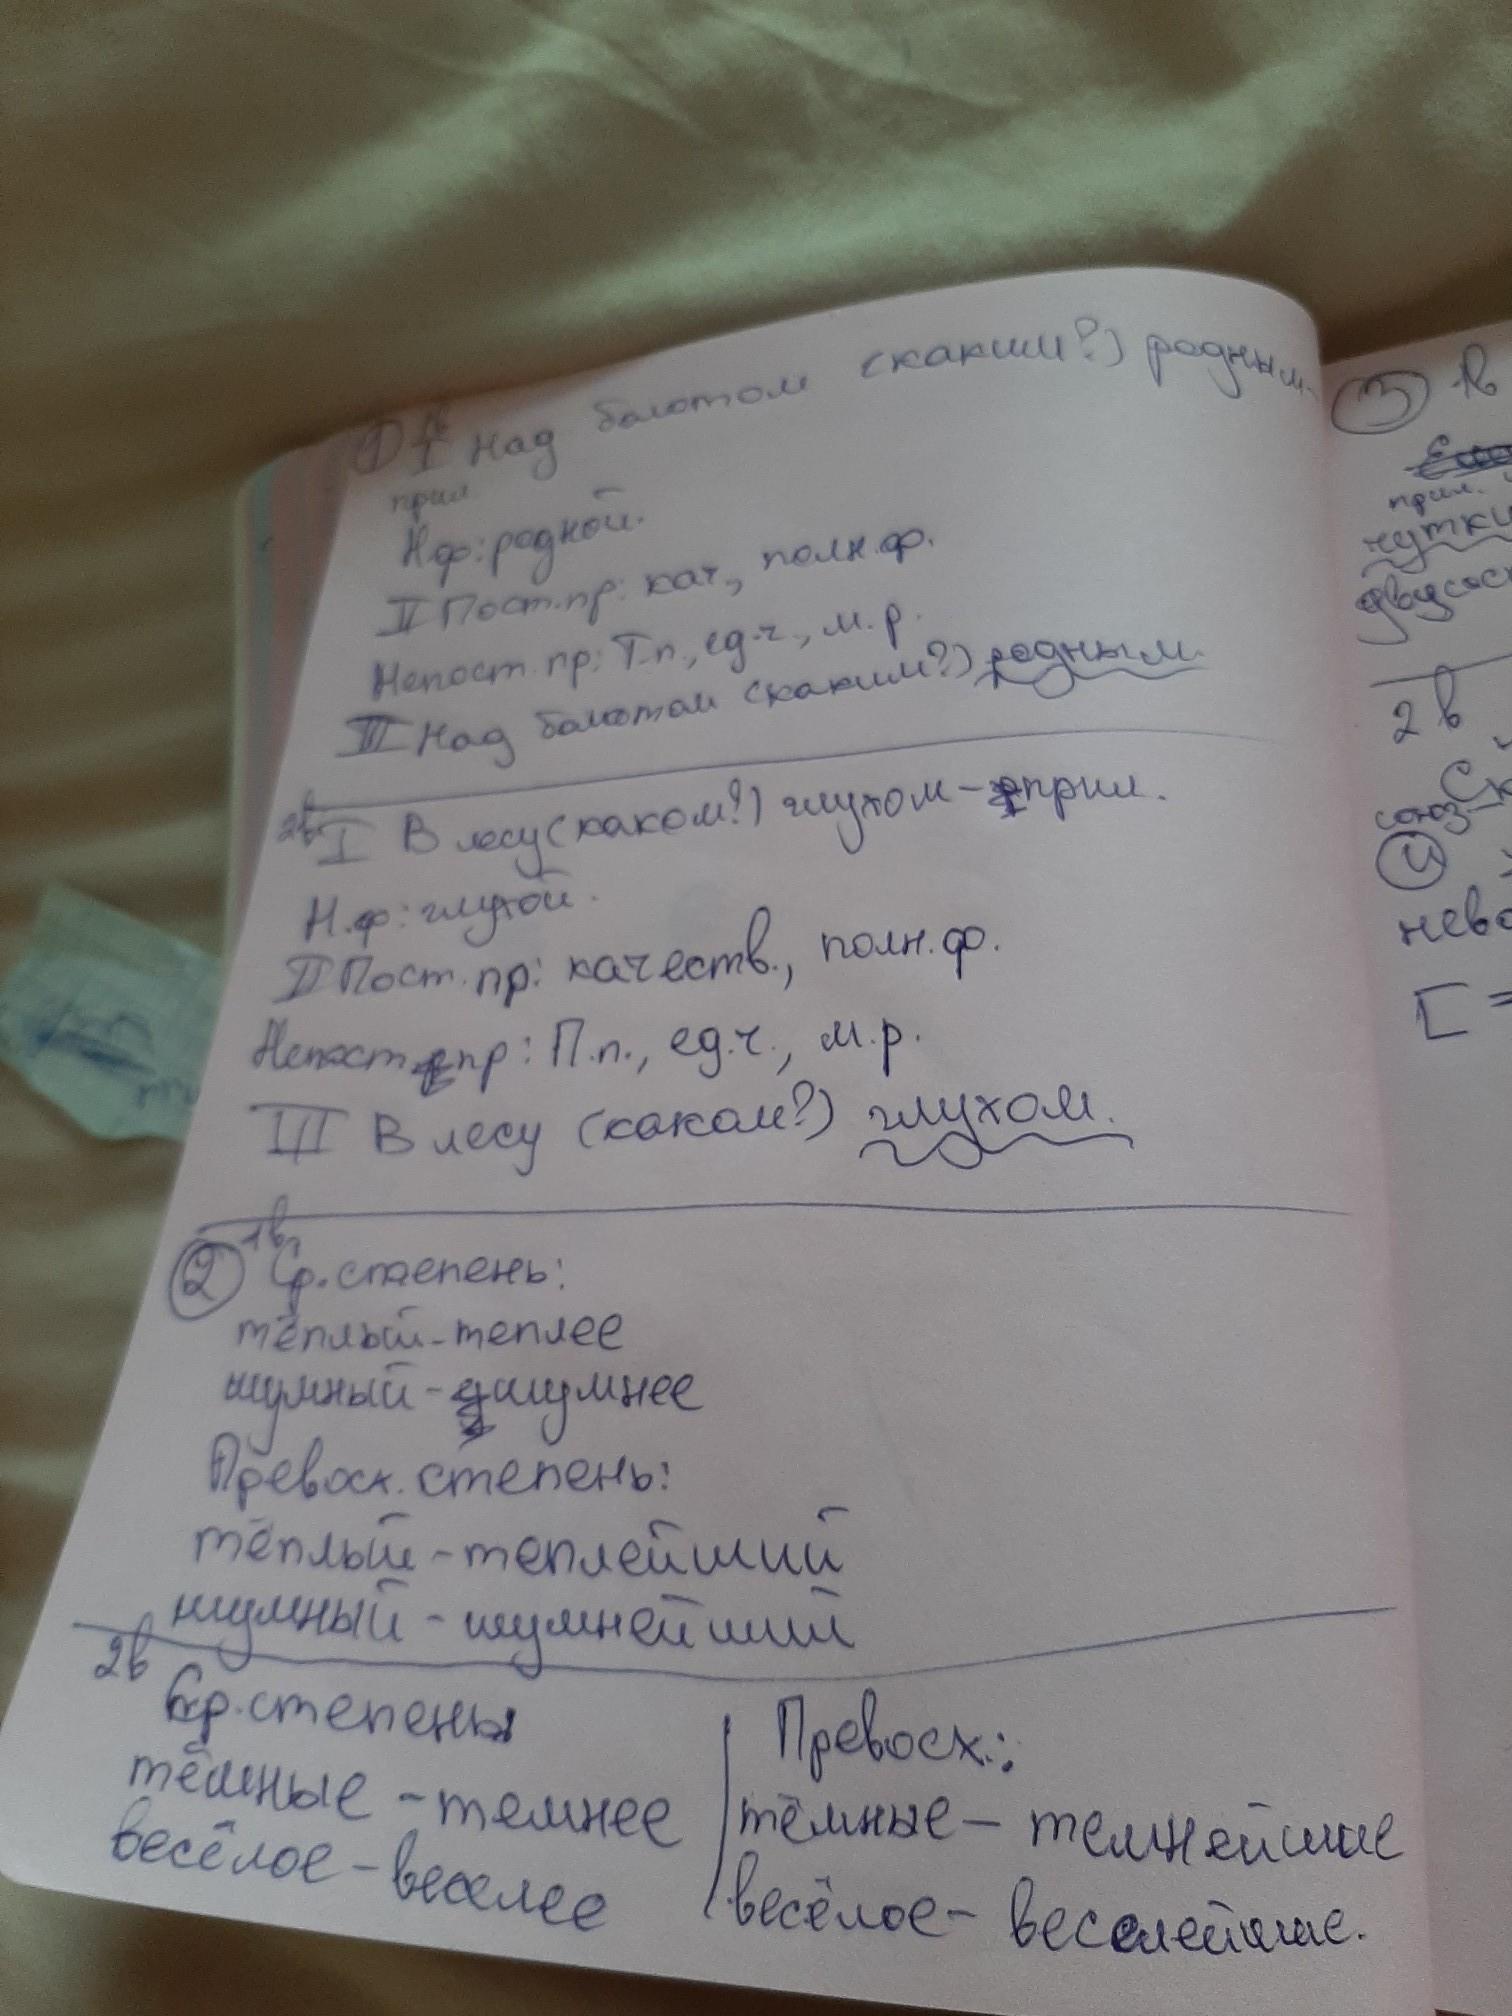 ① 1в I Над болотом (каким?) родным -
прил.
Н.ф: родной.
II Пост. пр: кач., полн.ф.
Непост. пр: Т.п., ед.ч., м.р.
III Над болотом (каким?) родным.
2в I В лесу (каком?) глухом - прил.
Н.ф: глухой.
II Пост. пр: качеств., полн.ф.
Непост. пр: П.п., ед.ч., м.р.
III В лесу (каком?) глухом.
② 1в Ср. степень:
тёплый - теплее
шумный - шумнее
Превосх. степень:
тёплый - теплейший
шумный - шумнейший
2в Ср. степень
тёмные - темнее
весёлое - веселее
Превосх.:
тёмные - темнейшие
весёлое - веселейшие.
③ 1в
прил.
2в
союз
[ =